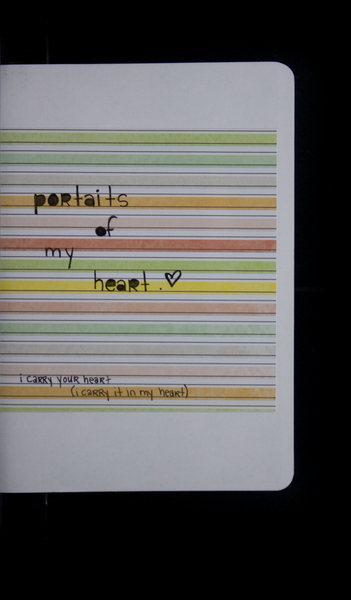 portaits
of
my
heart. ♡
i carry your heart
(i carry it in my heart)